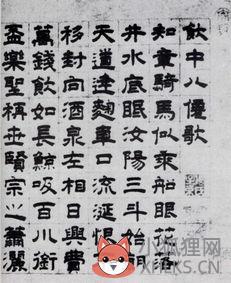 飲中八僊歌
知章騎馬似乘船眼花落
井水底眠汝陽三斗始朝
天道逢麴車口流涎恨
移封向酒泉左相日興費
萬錢飲如長鯨吸百川銜
盃樂聖稱世賢宗之蕭灑
小狐狸网